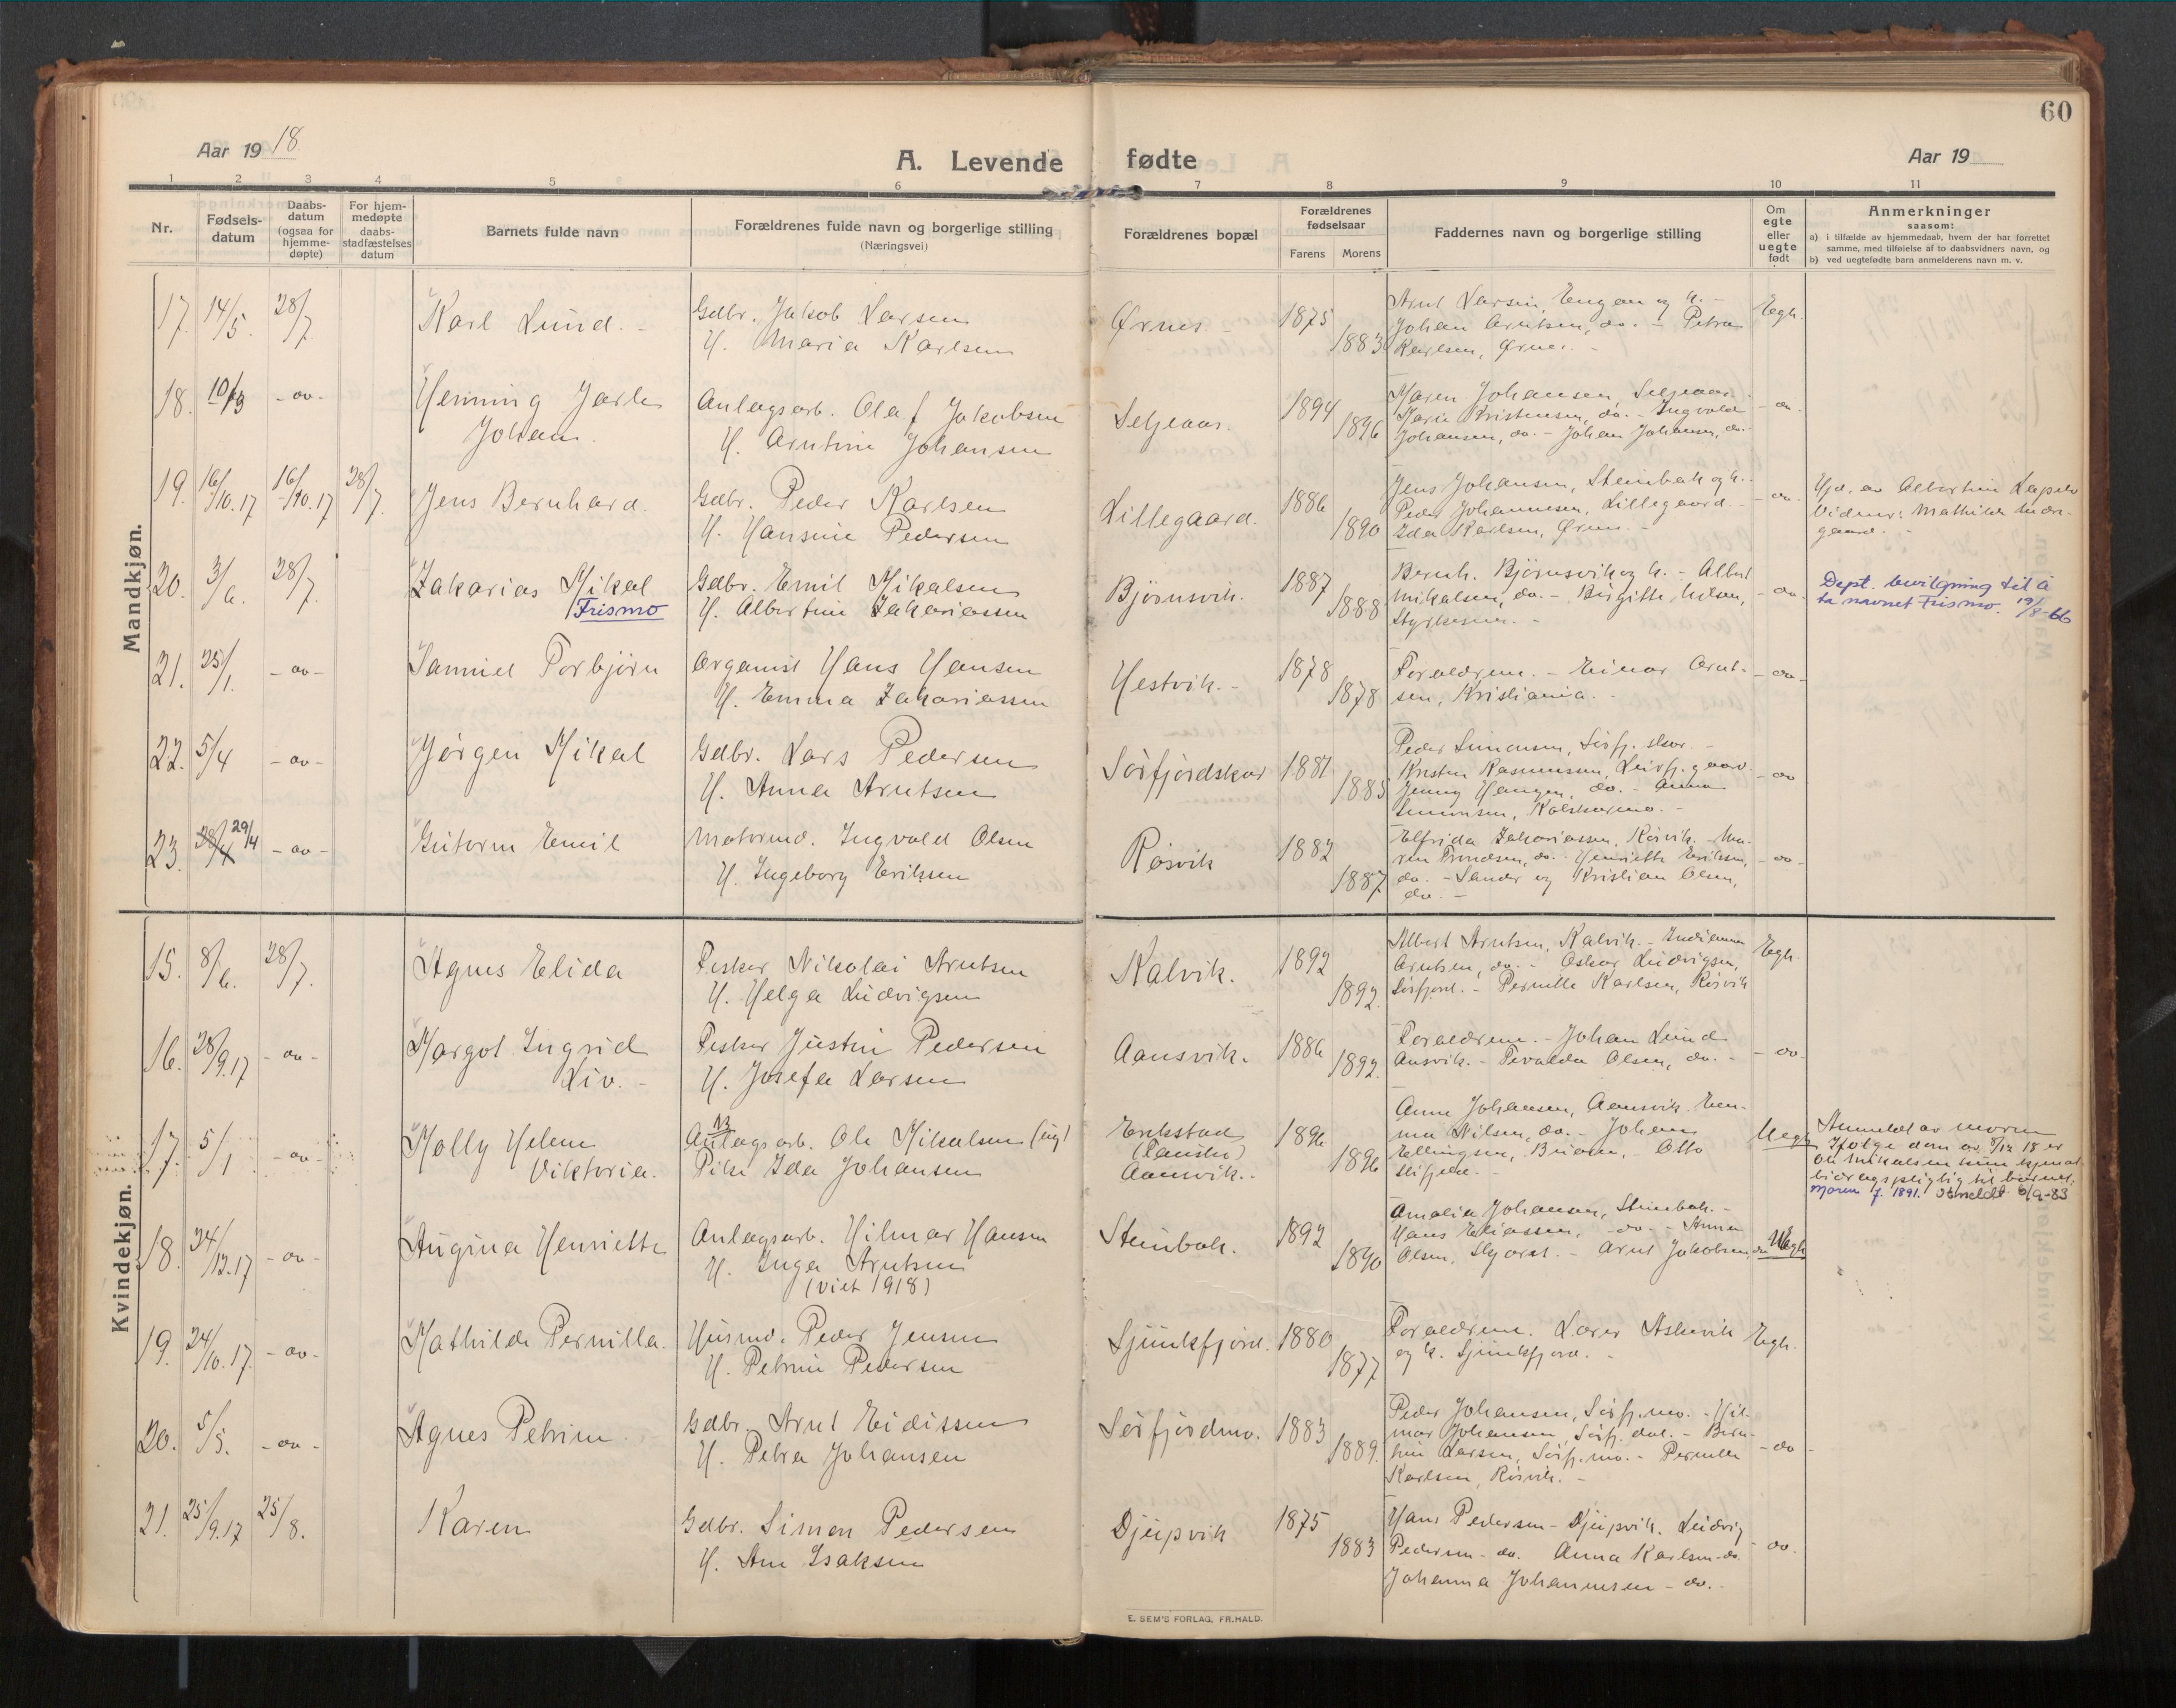 60
Aar 1918
A. Levende fødte
Aar 19
1 2 3 4 5 6 7 8 9 10 11
Nr.
Fødsels-
datum
Daabs-
datum
(ogsaa for
hjemme-
døpte)
For hjem-
medøpte
daabs-
stadfæstelses
datum
Barnets fulde navn
Forældrenes fulde navn og borgerlige stilling
(Næringsvei)
Forældrenes bopæl
Forældrenes
fødselsaar
Farens Morens
Faddernes navn og borgerlige stilling
Om
egte
eller
uegte
født
Anmerkninger
saasom:
a) i tilfælde av hjemmedaab, hvem der har forrettet
samme, med tilføielse af to daabsvidners navn, og
b) ved uegtefødte barn anmelderens navn m. v.
Mandkjøn.
17. 14/5. 28/7. Karl Lund. -
Gdbr. Jakob Larsen
H. Maria Karlsen
Ørnes - 1875 1883
Arnt Larsen, Engan og h. -
Johan Arntsen, do. - Petra
Karlsen, Ørnes. -
Egte.
18. 10/3 - do - Henning Jarle
Johan.
Anlægsarb. Olaf Jakobsen
H. Arntine Johansen
Seljeaas. 1894 1896
Maren Johansen, Seljeaas.
Marie Kristensen, do. - Ingvald
Johansen, do. - Johan Johansen, do.
- do -
19. 16/10.17 16/10.17 28/7. Jens Bernhard.
Gdbr. Peder Karlsen
H. Hansine Pedersen
Lillegaard. 1886 1890
Jens Johansen, Steinbak og h. -
Peder Johannesen, Lillegaard. -
Ida Karlsen, Ørnes. -
- do -
Hjd. av Albertine
Vidner: Mathilde
gaard. -
20. 3/6. 28/7. Zakarias Mikal
Frismo
Gdbr. Emil Mikalsen
H. Albertine Zakariassen
Bjørnsvik. 1887 1888
Bernh. Bjørnsvik og h. - Albert
Mikalsen, do. - Birgitte Nilsen,
- do -
Dept. bevilgning til å
ta navnet Frismo. 19/8-66
21. 25/1. - do - Samuel Torbjørn
Organist Hans Hansen
H. Emma Zakariassen
Hestvik. - 1878 1878
Forældrene. - Einar Arnt-
sen, Kristiania. -
- do -
22. 5/4 - do - Jørgen Mikal
Gdbr. Lars Pedersen
H. Anna Arntsen
Sørfjordskar 1881 1885
Peder Simonsen, Sørfj. skar. -
Kristen Rasmussen, Leirfj. gaard.
Jenny Haugen, do. - Anna
Simonsen, -
- do
23. 28/4 29/4 - do - Gutorm Emil
Motormd. Ingvald Olsen
H. Ingeborg Eriksen
Røsvik 1882 1887
Elfrida Zakariassen, Røsvik. - Ma-
ren do. - Henriette Eriksen,
do. - Sander og Kristian Olsen,
do. -
- do -
Kvindekjøn.
15. 8/6. 28/7. Agnes Elida
Fisker Nikolai Arntsen
H. Helga Ludvigsen
Kalvik. 1892 1892.
Albert Arntsen, Kalvik. -
Arntsen, do. - Oskar Ludvigsen,
Sørfjord. - Pernille Karlsen, Røsvik
Egte.
16. 28/9.17 - do - Margot Ingrid
Liv. -
Fisker Justin Pedersen
H. Josefa Larsen
Aansvik. 1886 1892.
Forældrene. - Johan Lund
Ansvik. - Tevalda Olsen, do. -
- do -
17. 5/1 - do - Molly Helene
Viktoria.
N3
Anlægsarb. Ole Mikalsen (ug)
Pike Ida Johansen
Erikstad
(Fauske)
Aansvik. - 1896 1896
Anna Johansen, Aansvik. Em-
ma Nilsen, do. - Johan
Ellingsen, - Otto
Uegte
Anmeldt av moren
Ifølge dom av 5/12 18 er
Ole Mikalsen kun kjendt
bidragspligtig til barnet.
Moren f. 1891. Utmeldt 6/9-83
18. 24/12.17 - do - Augina Henriette
Anlægsarb. Hilmar Hansen
H. Inga Arntsen
(viet 1918)
Steinbak. 1892 1890
Amalie Johansen, Steinbak. -
Hans Eliassen, - do - - Anna
Olsen, - Arnt Jakobsen, do
Uegte
19. 24/10.17 - do - Mathilde Pernilla.
Husmd. Peder Jensen
H. Petrine Pedersen
Sjunkfjord. 1880 1877
Forældrene. Lærer Askevik
og h. Sjunkfjord. -
Egte.
20. 5/5. - do - Agnes Petrine
Gdbr. Arnt Eidissen
H. Petra Johansen
Sørfjordmo. 1883 1889.
Peder Johansen, Sørfj. mo. - Hil-
mar Johansen, Sørfj. dal. - Bern-
tine Larsen, Sørfj. mo. - Pernille
Karlsen, Røsvik. -
- do -
21. 25/9.17 25/8. Karen
Gdbr. Simon Pedersen
H. Ane Isaksen
Djupvik 1875 1883
Hans Pedersen - Djupvik. Ludvig
Pedersen - do. Anna Karlsen - do.
Johanna Johannesen - do. -
- do.
E. SEM'S FORLAG, FR.HALD.